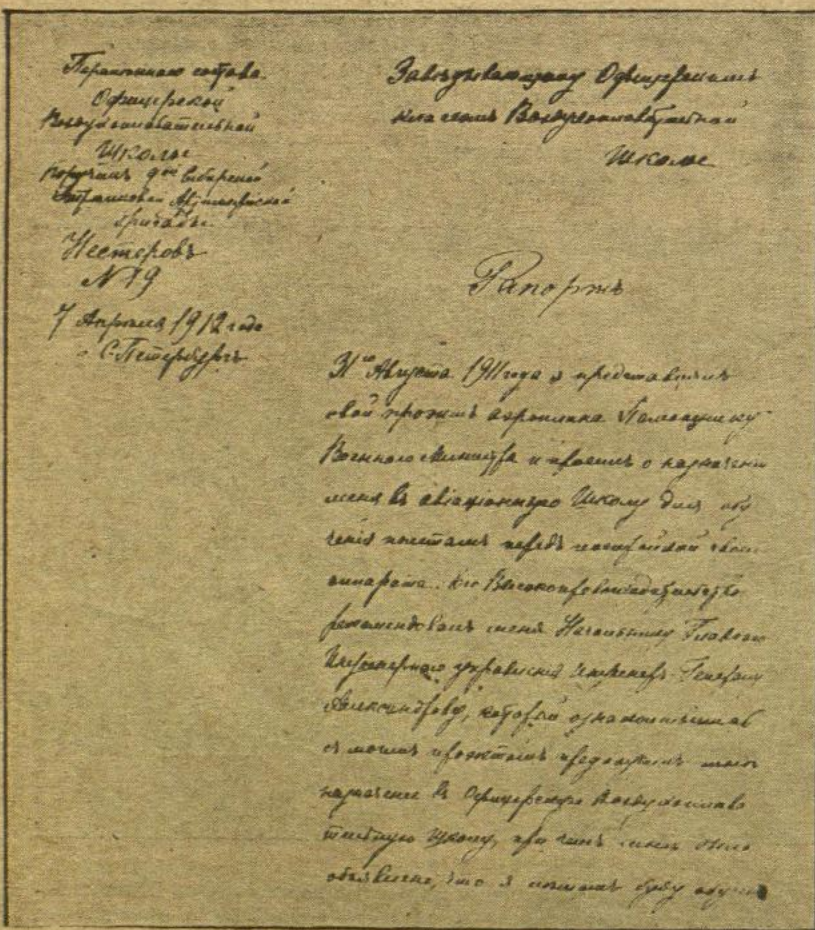 Переменнаго состава
Офицерской
Воздухоплавательной
Школы
поручикъ 9ой Сибирской
Стрѣлковой Артиллерійской
бригады
Нестеровъ
№ 19
7 Апрѣля 1912 года
С.Петербургъ
Завѣдывающему Офицерскимъ
классомъ Воздухоплавательной
Школы
Рапортъ
31го Августа 1911 года я представилъ
свой проектъ аэроплана Помощнику
Военнаго Министра и просилъ о назначении
меня въ авіаціонную Школу для обу
ченія полетамъ передъ постройкой своего
аппарата. Его Высокопревосходительство
рекомендовалъ меня Начальнику Главнаго
Инженернаго управленія Инженеръ-Генералу
Александрову, который ознакомившись
съ моимъ проектомъ предложилъ мнѣ
назначение въ Офицерскую Воздухоплава
тельную Школу, при чемъ мнѣ было
объявлено, что я полетамъ буду обучен